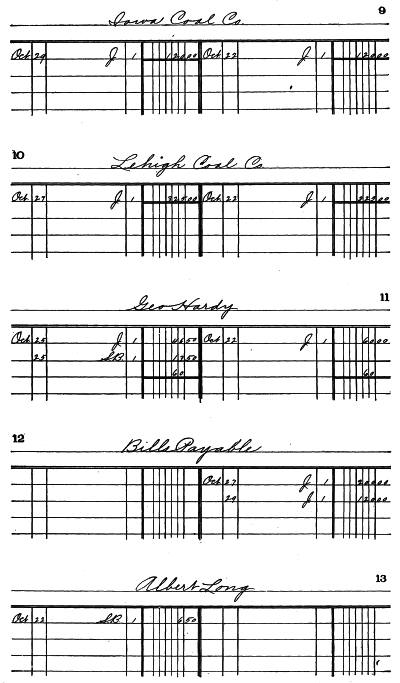 9
Iowa Coal Co.
Oct 29 J 1 12000 Oct 22 J 1 12000
10
Lehigh Coal Co
Oct 27 J 1 22500 Oct 22 J 1 22500
11
Geo Hardy
Oct 25 J 1 4250 Oct 22 J 1 6000
25 S.B. 1 1750
60 60
12
Bills Payable
Oct 27 J 1 20000
29 J 1 12000
13
Albert Long
Oct 22 S.B. 1 650